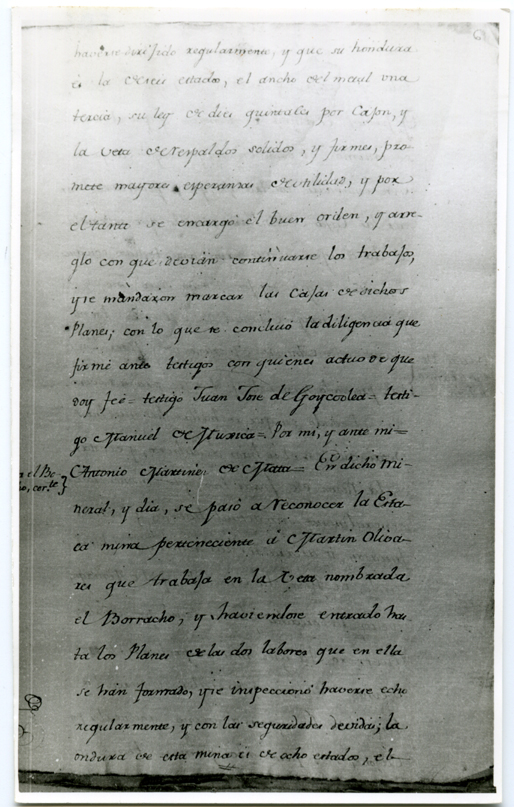 haverse dirijido regularmente, y que su hondura
es la de seis estados, el ancho del metal una
tercia, su ley de dies quintales por Cajon, y
la veta de Respaldos solidos, y firmes, pro-
mete mayores esperanzas de utilidad, y por
el tanto se encargó el buen orden, y arre-
glo con que devian continuarse los trabajos,
y se mandaron marcar las Cajas de dichos
Planes; con lo que se concluió la diligencia que
firmé ante testigos con quienes actuo de que
doy feé = testigo Juan Jose de Goycoolea = testi-
go Manuel de Muxica = Por mi, y ante mi =
Antonio Martines de Mata = En dicho mi-
neral, y dia, se pasó a reconocer la Esta-
ca mina perteneciente á Martin Oliva-
res que trabaja en la Veta nombrada
el Borracho, y haviendose entrado has-
ta los Planes de las dos labores que en ella
se han formado, y se inspeccionó haverse echo
regularmente, y con las seguridades devidas; la
ondura de esta mina es de ocho estados, el